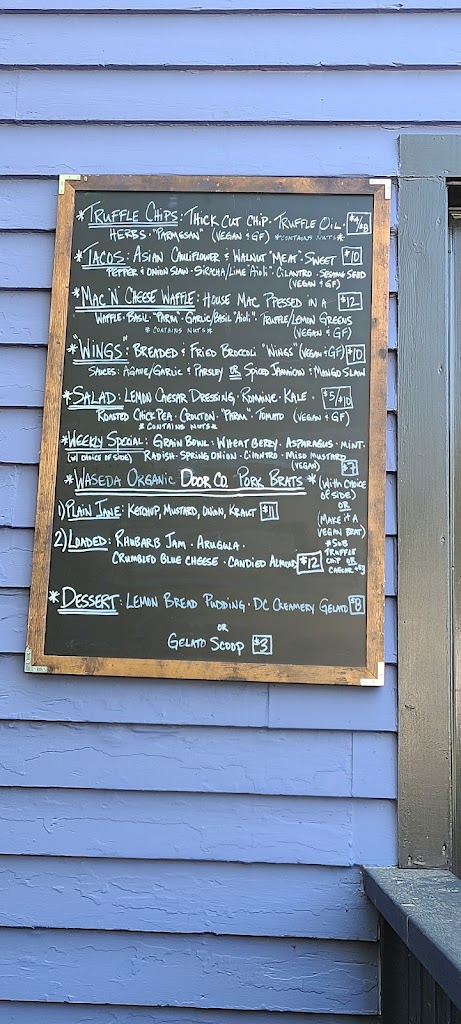 *TRUFFLE CHIPS: THICK CUT CHIP · TRUFFLE OIL · $4/$8
HERBS · "PARMESAN" (VEGAN & GF) *CONTAINS NUTS*
*TACOS: ASIAN CAULIFLOWER & WALNUT "MEAT" · SWEET $10
PEPPER & ONION SLAW · SIRACHA/LIME "AIOLI" · CILANTRO · SESAME SEED
(VEGAN & GF)
*MAC 'N' CHEESE WAFFLE: HOUSE MAC PRESSED IN A $12
WAFFLE · BASIL · "PARM" · GARLIC/BASIL "AIOLI" · TRUFFLE/LEMON GREENS
*CONTAINS NUTS* (VEGAN & GF)
*"WINGS": BREADED & FRIED BROCCOLI "WINGS" (VEGAN & GF) $10
SAUCES: AGAVE/GARLIC & PARSLEY OR SPICED JAMAICAN & MANGO SLAW
*SALAD: LEMON CAESAR DRESSING · ROMAINE · KALE · $5/$10
ROASTED CHICK PEA · CROUTON · "PARM" · TOMATO (VEGAN & GF)
*CONTAINS NUTS*
*WEEKLY SPECIAL: GRAIN BOWL: WHEAT BERRY · ASPARAGUS · MINT ·
(W/ CHOICE OF SIDE) RADISH · SPRING ONION · CILANTRO · MISO MUSTARD
(VEGAN)
*WASEDA ORGANIC DOOR CO. PORK BRATS* (WITH CHOICE
OF SIDE)
OR
(MAKE IT A
VEGAN BRAT)
1) PLAIN JANE: KETCHUP, MUSTARD, ONION, KRAUT $11
2) LOADED: RHUBARB JAM · ARUGULA ·
CRUMBLED BLUE CHEESE · CANDIED ALMOND $12
*SUB
TRUFFLE
CHIP OR
CAESAR +$3
*DESSERT: LEMON BREAD PUDDING · DC CREAMERY GELATO $8
OR
GELATO SCOOP $3